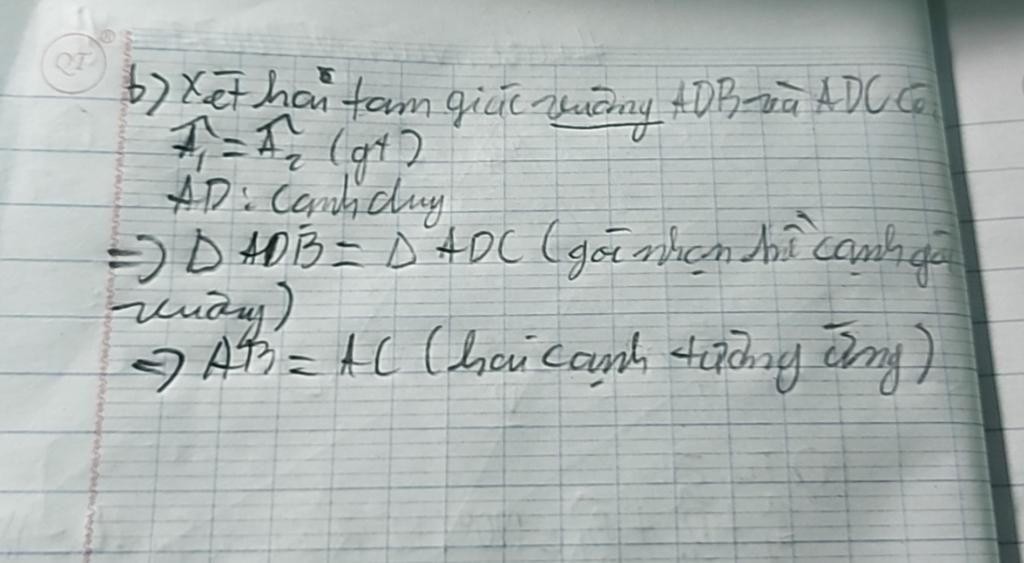 QT ®
b) Xét hai tam giác vuông ADB và ADC có
Â₁ = Â₂ (gt)
AD : Cạnh chung
=> Δ ADB = Δ ADC (góc nhọn kề cạnh góc
vuông)
=> AB = AC (hai cạnh tương ứng)